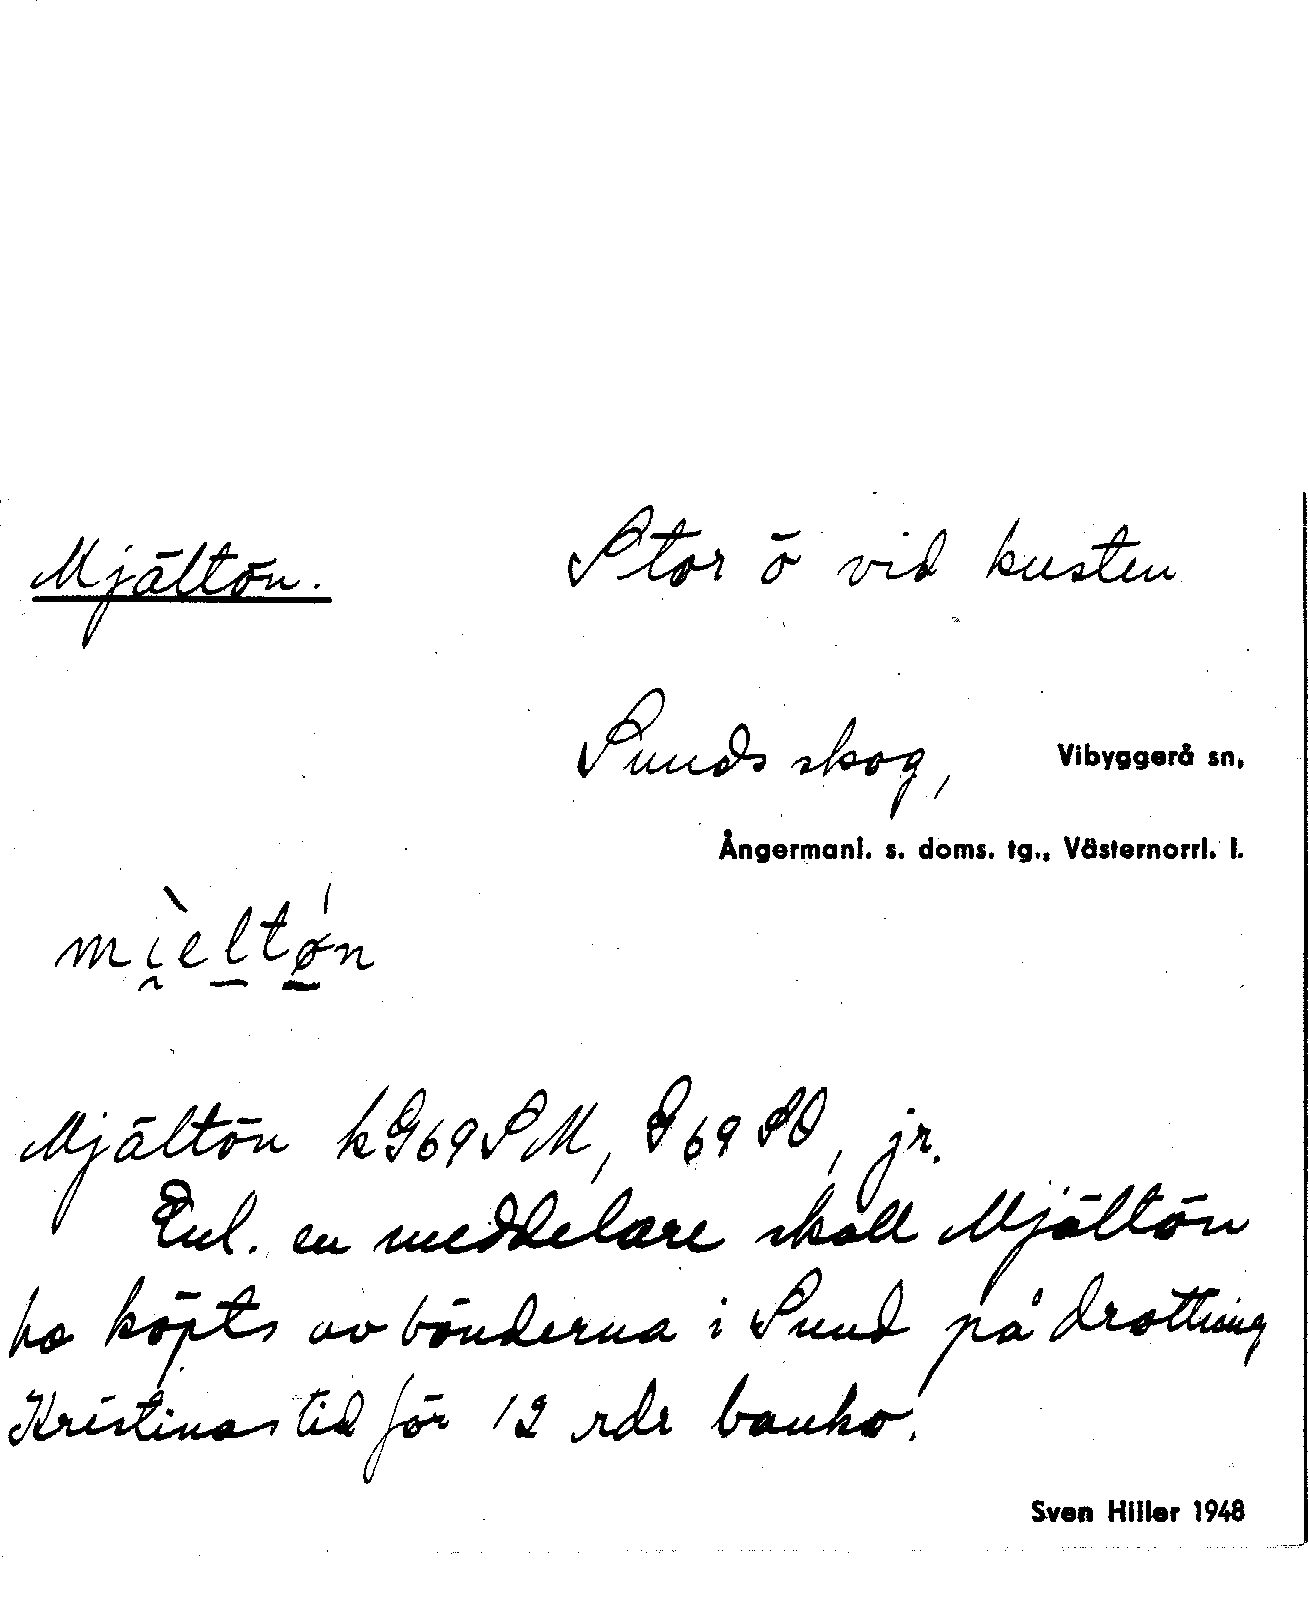 Mjältön. Stor ö vid kusten
Sunds skog, Vibyggerå sn,
Ångermanl. s. doms. tg., Västernorrl. l.
mi̯eltøn
Mjältön kG69SM, G69SO, jr.
Enl. en meddelare skall Mjältön
ha köpts av bönderna i Sund på drottning
Kristinas tid för 12 rdr banko.
Sven Hiller 1948